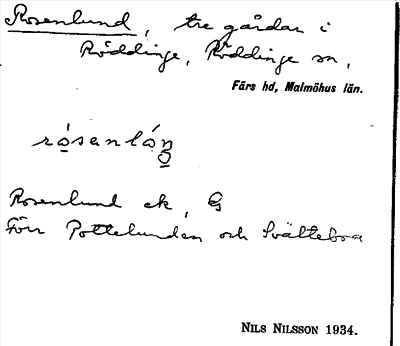 Rosenlund, tre gårdar i
Röddinge, Röddinge sn,
Färs hd, Malmöhus län.
rósenlóṉ
Rosenlund ek, G
Förr Pottelunden och Svältebo
NILS NILSSON 1934.